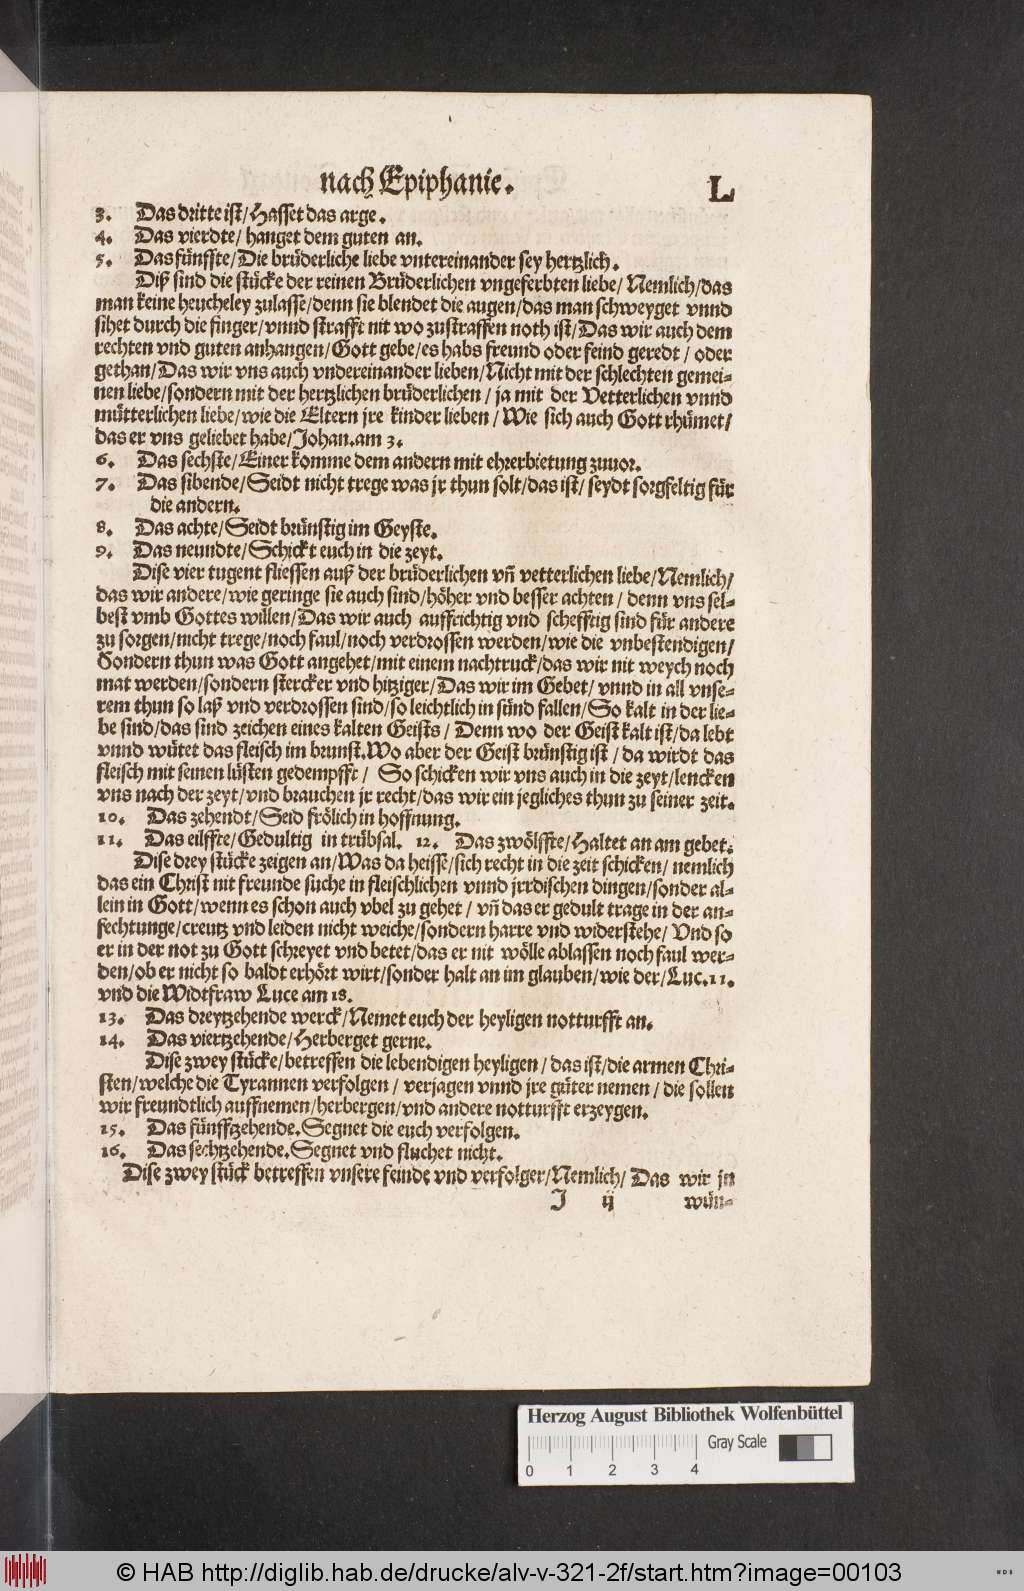 nach Epiphanie. L
3. Das dritte ist/Hasset das arge.
4. Das vierdte/ hanget dem guten an.
5. Das fünffte/Die brüderliche liebe vntereinander sey hertzlich.
Diß sind die stücke der reinen Brüderlichen vngeferbten liebe/ Nemlich/das
man keine heucheley zulasse/denn sie blendet die augen/das man schweyget vnnd
sihet durch die finger/vnnd strafft nit wo zustraffen noth ist/Das wir auch dem
rechten vnd guten anhangen/Gott gebe/es habs freund oder feind geredt / oder
gethan/Das wir vns auch vndereinander lieben/Nicht mit der schlechten gemei-
nen liebe/sondern mit der hertzlichen brüderlichen / ja mit der Vetterlichen vnnd
mütterlichen liebe/wie die Eltern jre kinder lieben / Wie sich auch Gott rhümet/
das er vns geliebet habe/Johan.am 3.
6. Das sechste/Einer komme dem andern mit ehrerbietung zuuor.
7. Das sibende/Seidt nicht trege was jr thun solt/das ist/ seydt sorgfeltig für
die andern.
8. Das achte/Seidt brünstig im Geyste.
9. Das neundte/Schickt euch in die zeyt.
Dise vier tugent fliessen auß der brüderlichen vñ vetterlichen liebe/Nemlich/
das wir andere/wie geringe sie auch sind/höher vnd besser achten / denn vns sel-
best vmb Gottes willen/Das wir auch auffrichtig vnd schefftig sind für andere
zu sorgen/nicht trege/noch faul/noch verdrossen werden/wie die vnbestendigen/
Sondern thun was Gott angehet/mit einem nachtruck/das wir nit weych noch
mat werden/sondern stercker vnd hitziger/Das wir im Gebet/ vnnd in all vnse-
rem thun so laß vnd verdrossen sind/so leichtlich in sünd fallen/So kalt in der lie-
be sind/das sind zeichen eines kalten Geists / Denn wo der Geist kalt ist/da lebt
vnnd wütet das fleisch im brunst.Wo aber der Geist brünstig ist / da wirdt das
fleisch mit seinen lüsten gedempfft / So schicken wir vns auch in die zeyt/lencken
vns nach der zeyt/vnd brauchen jr recht/das wir ein jegliches thun zu seiner zeit.
10. Das zehendt/Seid frölich in hoffnung.
11. Das eilffte/Gedultig in trübsal. 12. Das zwölffte/Haltet an am gebet.
Dise drey stücke zeigen an/Was da heisse/sich recht in die zeit schicken/ nemlich
das ein Christ nit freunde suche in fleischlichen vnnd jrrdischen dingen/sonder al-
lein in Gott/wenn es schon auch vbel zu gehet / vñ das er gedult trage in der an-
fechtunge/creutz vnd leiden nicht weiche/sondern harre vnd widerstehe/ Vnd so
er in der not zu Gott schreyet vnd betet/das er nit wölle ablassen noch faul wer-
den/ob er nicht so baldt erhört wirt/sonder halt an im glauben/wie der/Luc.11.
vnd die Widtfraw Luce am 18.
13. Das dreytzehende werck/Nemet euch der heyligen notturfft an.
14. Das viertzehende/Herberget gerne.
Dise zwey stücke/betreffen die lebendigen heyligen / das ist/die armen Chri-
sten/welche die Tyrannen verfolgen / verjagen vnnd jre güter nemen / die sollen
wir freundtlich auffnemen/herbergen/vnd andere notturfft erzeygen.
15. Das fünfftzehende.Segnet die euch verfolgen.
16. Das sechtzehende.Segnet vnd fluchet nicht.
Dise zwey stück betreffen vnsere feinde vnd verfolger/Nemlich/ Das wir jn
J ij wün-
Herzog August Bibliothek Wolfenbüttel
Gray Scale
0 1 2 3 4
© HAB http://diglib.hab.de/drucke/alv-v-321-2f/start.htm?image=00103